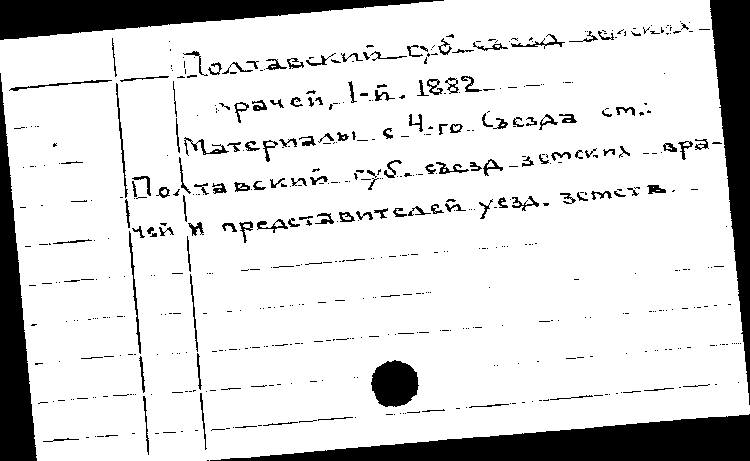 Полтавский губ. съезд земских
врачей, 1-й. 1882
Материалы с 4-го Съезда см.:
Полтавский губ. съезд земских вра-
чей и представителей уезд. земств.